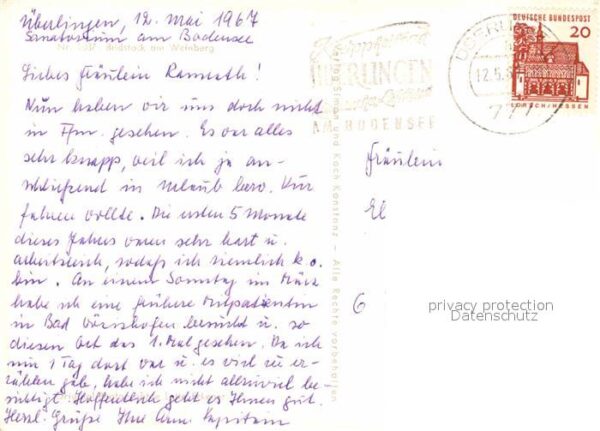 Überlingen, 12. Mai 1967
Sanatorium am Bodensee
Bildstock am Weinberg
Liebes Fräulein
Nun haben wir uns doch nicht
in Ffm. gesehen. Es war alles
sehr knapp, weil ich ja an-
schließend in Urlaub bzw. Kur
fahren wollte. Die ersten 5 Monate
dieses Jahres waren sehr hart u.
arbeitsreich, sodaß ich ziemlich k.o.
bin. An einem Sonntag im März
habe ich eine frühere Mitpatientin
in Bad Wörishofen besucht u. so
diesen Ort das 1. Mal gesehen. Da ich
nur 1 Tag dort war u. es viel zu er-
zählen gab, habe ich nicht allzuviel be-
sichtigt. Hoffentlich geht es Ihnen gut.
Herzl. Grüße Ihre
Verlag Simon und Koch Konstanz - Alle Rechte vorbehalten
ÜBERLINGEN
AM BODENSEE
12.5.6
777
DEUTSCHE BUNDESPOST
20
LORSCH/HESSEN
Fräulein
El
6
privacy protection
Datenschutz